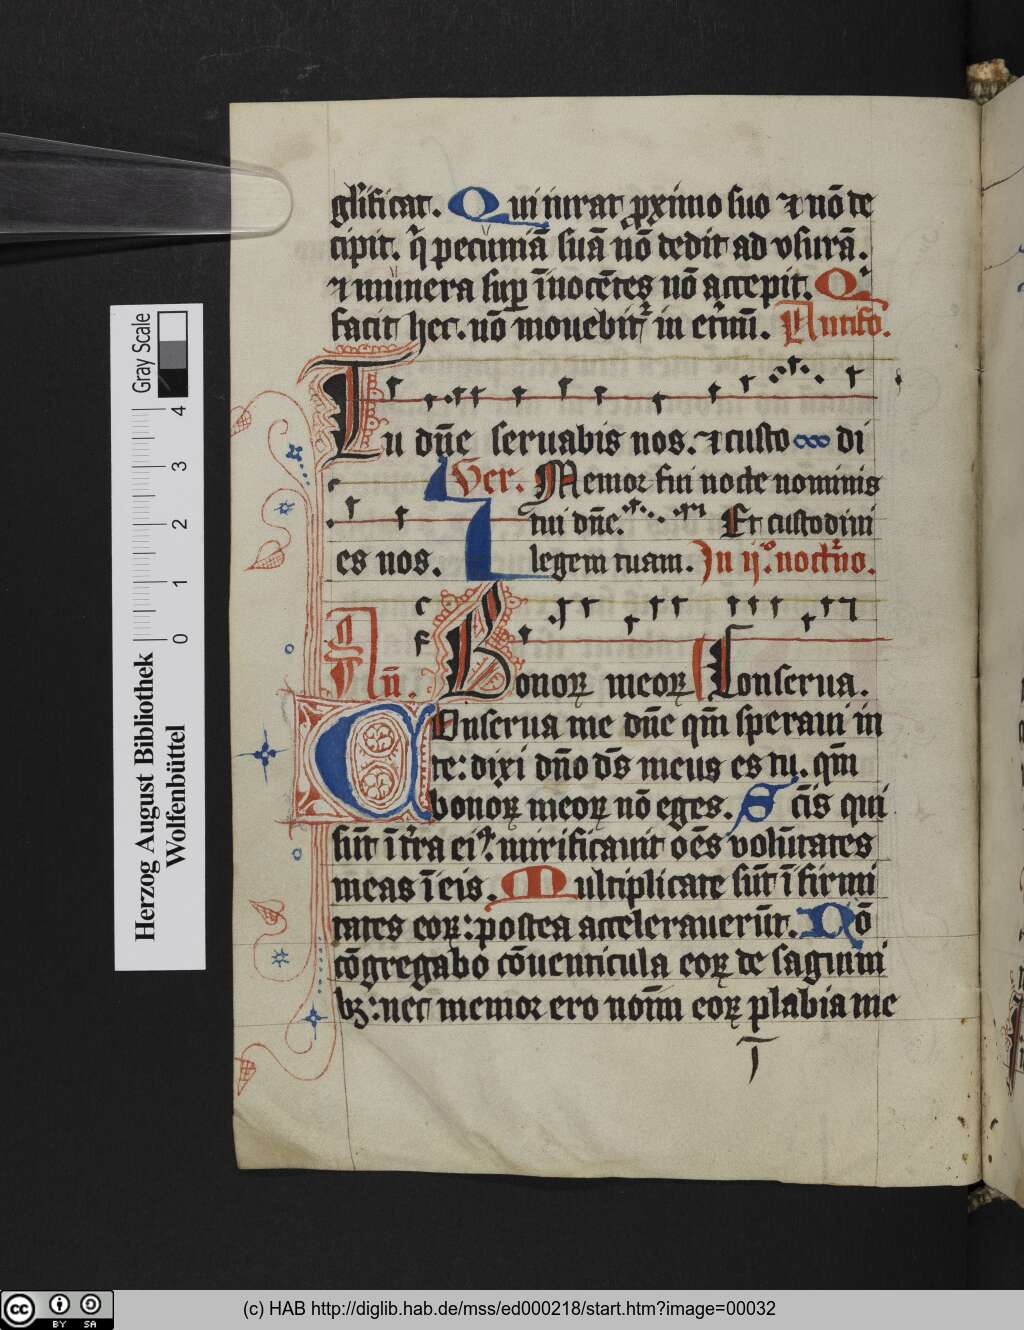 glificat. Qui iurat pximo suo ⁊ nō de
cipit. q̄ pecuniā suā nō dedit ad vsurā.
⁊ munera sup īnocētes nō accepit. Q
facit hec. nō mouebit in etnū. Antifo.
Tu dn̄e seruabis nos. ⁊ custo di
Ver. Memor fui nocte nominis
tui dn̄e. Et custodiui
es nos. legem tuam. In ij.o noctno.
c
f
An̄. Bonoꝝ meoꝝ Conserua.
Conserua me dn̄e qm̄ speraui in
te: dixi dn̄o ds̄ meus es tu. qm̄
bonoꝝ meoꝝ nō eges. S cīs qui
sūt ī t̄ra ei⁹. mirificauit oēs volūtates
meas ī eis. Multiplicate sūt ī firmi
tates eoꝝ: postea accelerauerūt. Nō
cōgregabo cōuenticula eoꝝ de saguini
bꝫ: nec memor ero noīm eoꝝ p labia me
Gray Scale
4
3
2
1
0
Herzog August Bibliothek
Wolfenbüttel
cc BY SA
(c) HAB http://diglib.hab.de/mss/ed000218/start.htm?image=00032